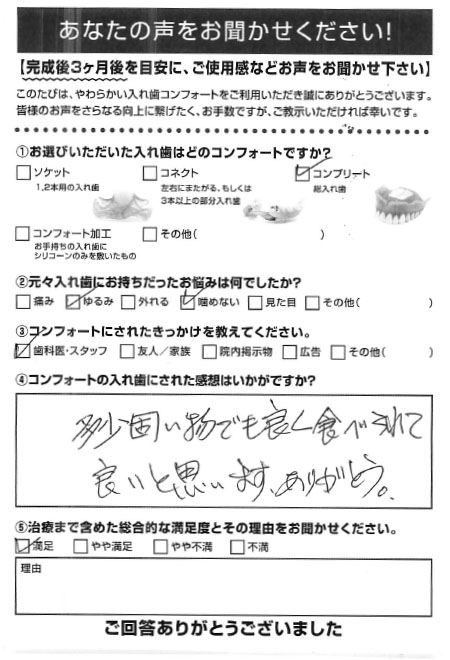 あなたの声をお聞かせください!
【完成後3ヶ月後を目安に、ご使用感などお声をお聞かせ下さい】
このたびは、やわらかい入れ歯コンフォートをご利用いただき誠にありがとうございます。
皆様のお声をさらなる向上に繋げたく、お手数ですが、ご教示いただければ幸いです。
①お選びいただいた入れ歯はどのコンフォートですか?
ソケット コネクト コンプリート
1,2本用の入れ歯 左右にまたがる、もしくは 総入れ歯
3本以上の部分入れ歯
コンフォート加工 その他( )
お手持ちの入れ歯に
シリコーンのみを敷いたもの
②元々入れ歯にお持ちだったお悩みは何でしたか?
痛み ゆるみ 外れる 噛めない 見た目 その他( )
③コンフォートにされたきっかけを教えてください。
歯科医・スタッフ 友人／家族 院内掲示物 広告 その他( )
④コンフォートの入れ歯にされた感想はいかがですか?
多少固い物でも良く食べられて
良いと思います、ありがとう。
⑤治療まで含めた総合的な満足度とその理由をお聞かせください。
満足 やや満足 やや不満 不満
理由
ご回答ありがとうございました